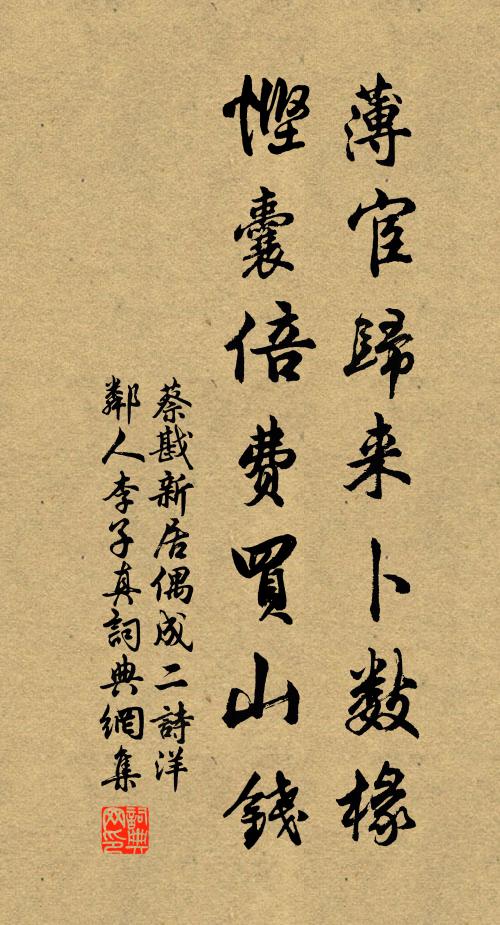 薄宦歸来卜數椽
慳囊倍費買山錢
蔡戡新居偶成二詩洋
鄰人李子真詞典網集
詞典網印